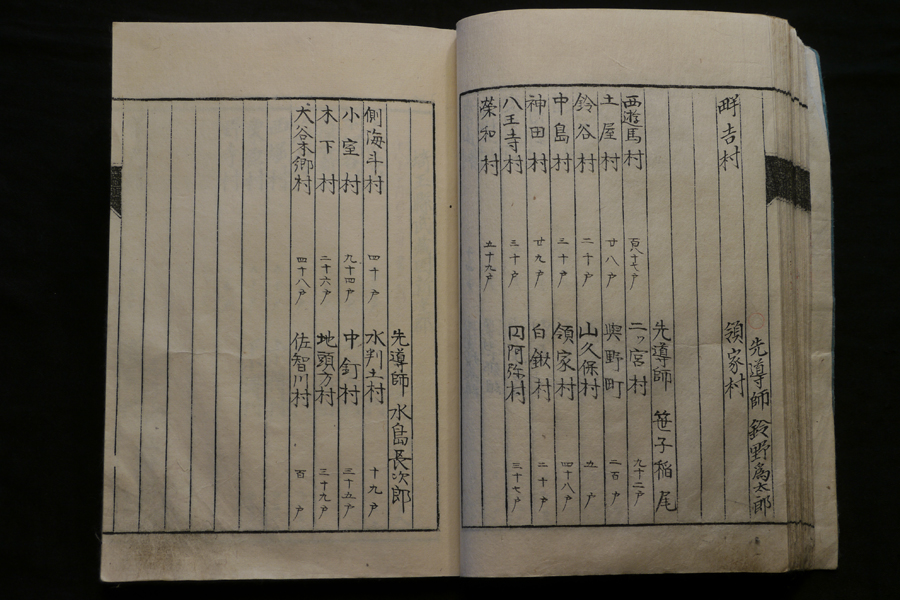 先導師 鈴野為太郎
畔吉村 領家村
先導師 笹子稲尾
西遊馬村 百八十七戸 二ッ宮村 九十二戸
土屋村 廿八戸 與野町 二百戸
鈴谷村 二十戸 山久保村 五戸
中島村 三十戸 領家村 四十八戸
神田村 廿九戸 白鍬村 二十戸
八王寺村 三十戸 円阿弥村 三十七戸
榮和村 五十九戸
先導師 水島長次郎
側海斗村 四十戸 水判土村 十九戸
小室村 九十四戸 中釘村 三十五戸
木下村 二十六戸 地頭方村 三十九戸
大谷本郷村 四十八戸 佐智川村 百戸